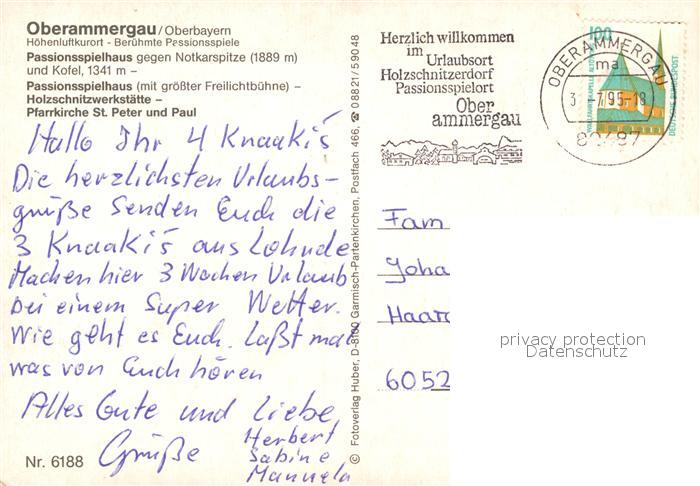 Oberammergau/Oberbayern
Höhenluftkurort - Berühmte Passionsspiele
Passionsspielhaus gegen Notkarspitze (1889 m)
und Kofel, 1341 m –
Passionsspielhaus (mit größter Freilichtbühne) –
Holzschnitzwerkstätte –
Pfarrkirche St. Peter und Paul
Hallo Ihr 4 Knaaki's
Die herzlichsten Urlaubs-
grüße Senden Euch die
3 Knaaki's aus Lohnde
Machen hier 3 Wochen Urlaub
bei einem Super Wetter.
Wie geht es Euch. Laßt mal
was von Euch hören
Alles Gute und Liebe,
Grüße
Herbert
Sabine
Manuela
Nr. 6188
© Fotoverlag Huber, D-8100 Garmisch-Partenkirchen, Postfach 466, ☎ 08821/59048
Herzlich willkommen
im
Urlaubsort
Holzschnitzerdorf
Passionsspielort
Ober
ammergau
OBERAMMERGAU
ma
7.95-18
82487
100
DEUTSCHE BUNDESPOST
Fam
Joha
Haar
6052
privacy protection
Datenschutz